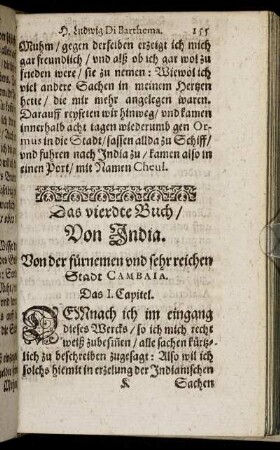 H. Ludwig Di Barthema. 155
Muhm / gegen derselben erzeigt ich mich
gar freundlich / vnd alß ob ich gar wol zu
frieden were / sie zu nemen: Wiewol ich
viel andere Sachen in meinem Hertzen
hette / die mir mehr angelegen waren.
Darauff reyseten wir hinweg / vnd kamen
innerhalb acht tagen wiederumb gen Or-
mus in die Stadt / sassen allda zu Schiff /
vnd fuhren nach India zu / kamen also in
einen Port / mit Namen Cheul.
Das vierdte Buch /
Von India.
Von der fürnemen vnd sehr reichen
Stadt CAMBAIA.
Das I. Capitel.
DEMnach ich im eingang
dieses Wercks / so ich mich recht
weiß zubesinnen / alle sachen kürtz-
lich zu beschreiben zugesagt: Also wil ich
solchs hiemit in erzelung der Indianischen
K Sachen